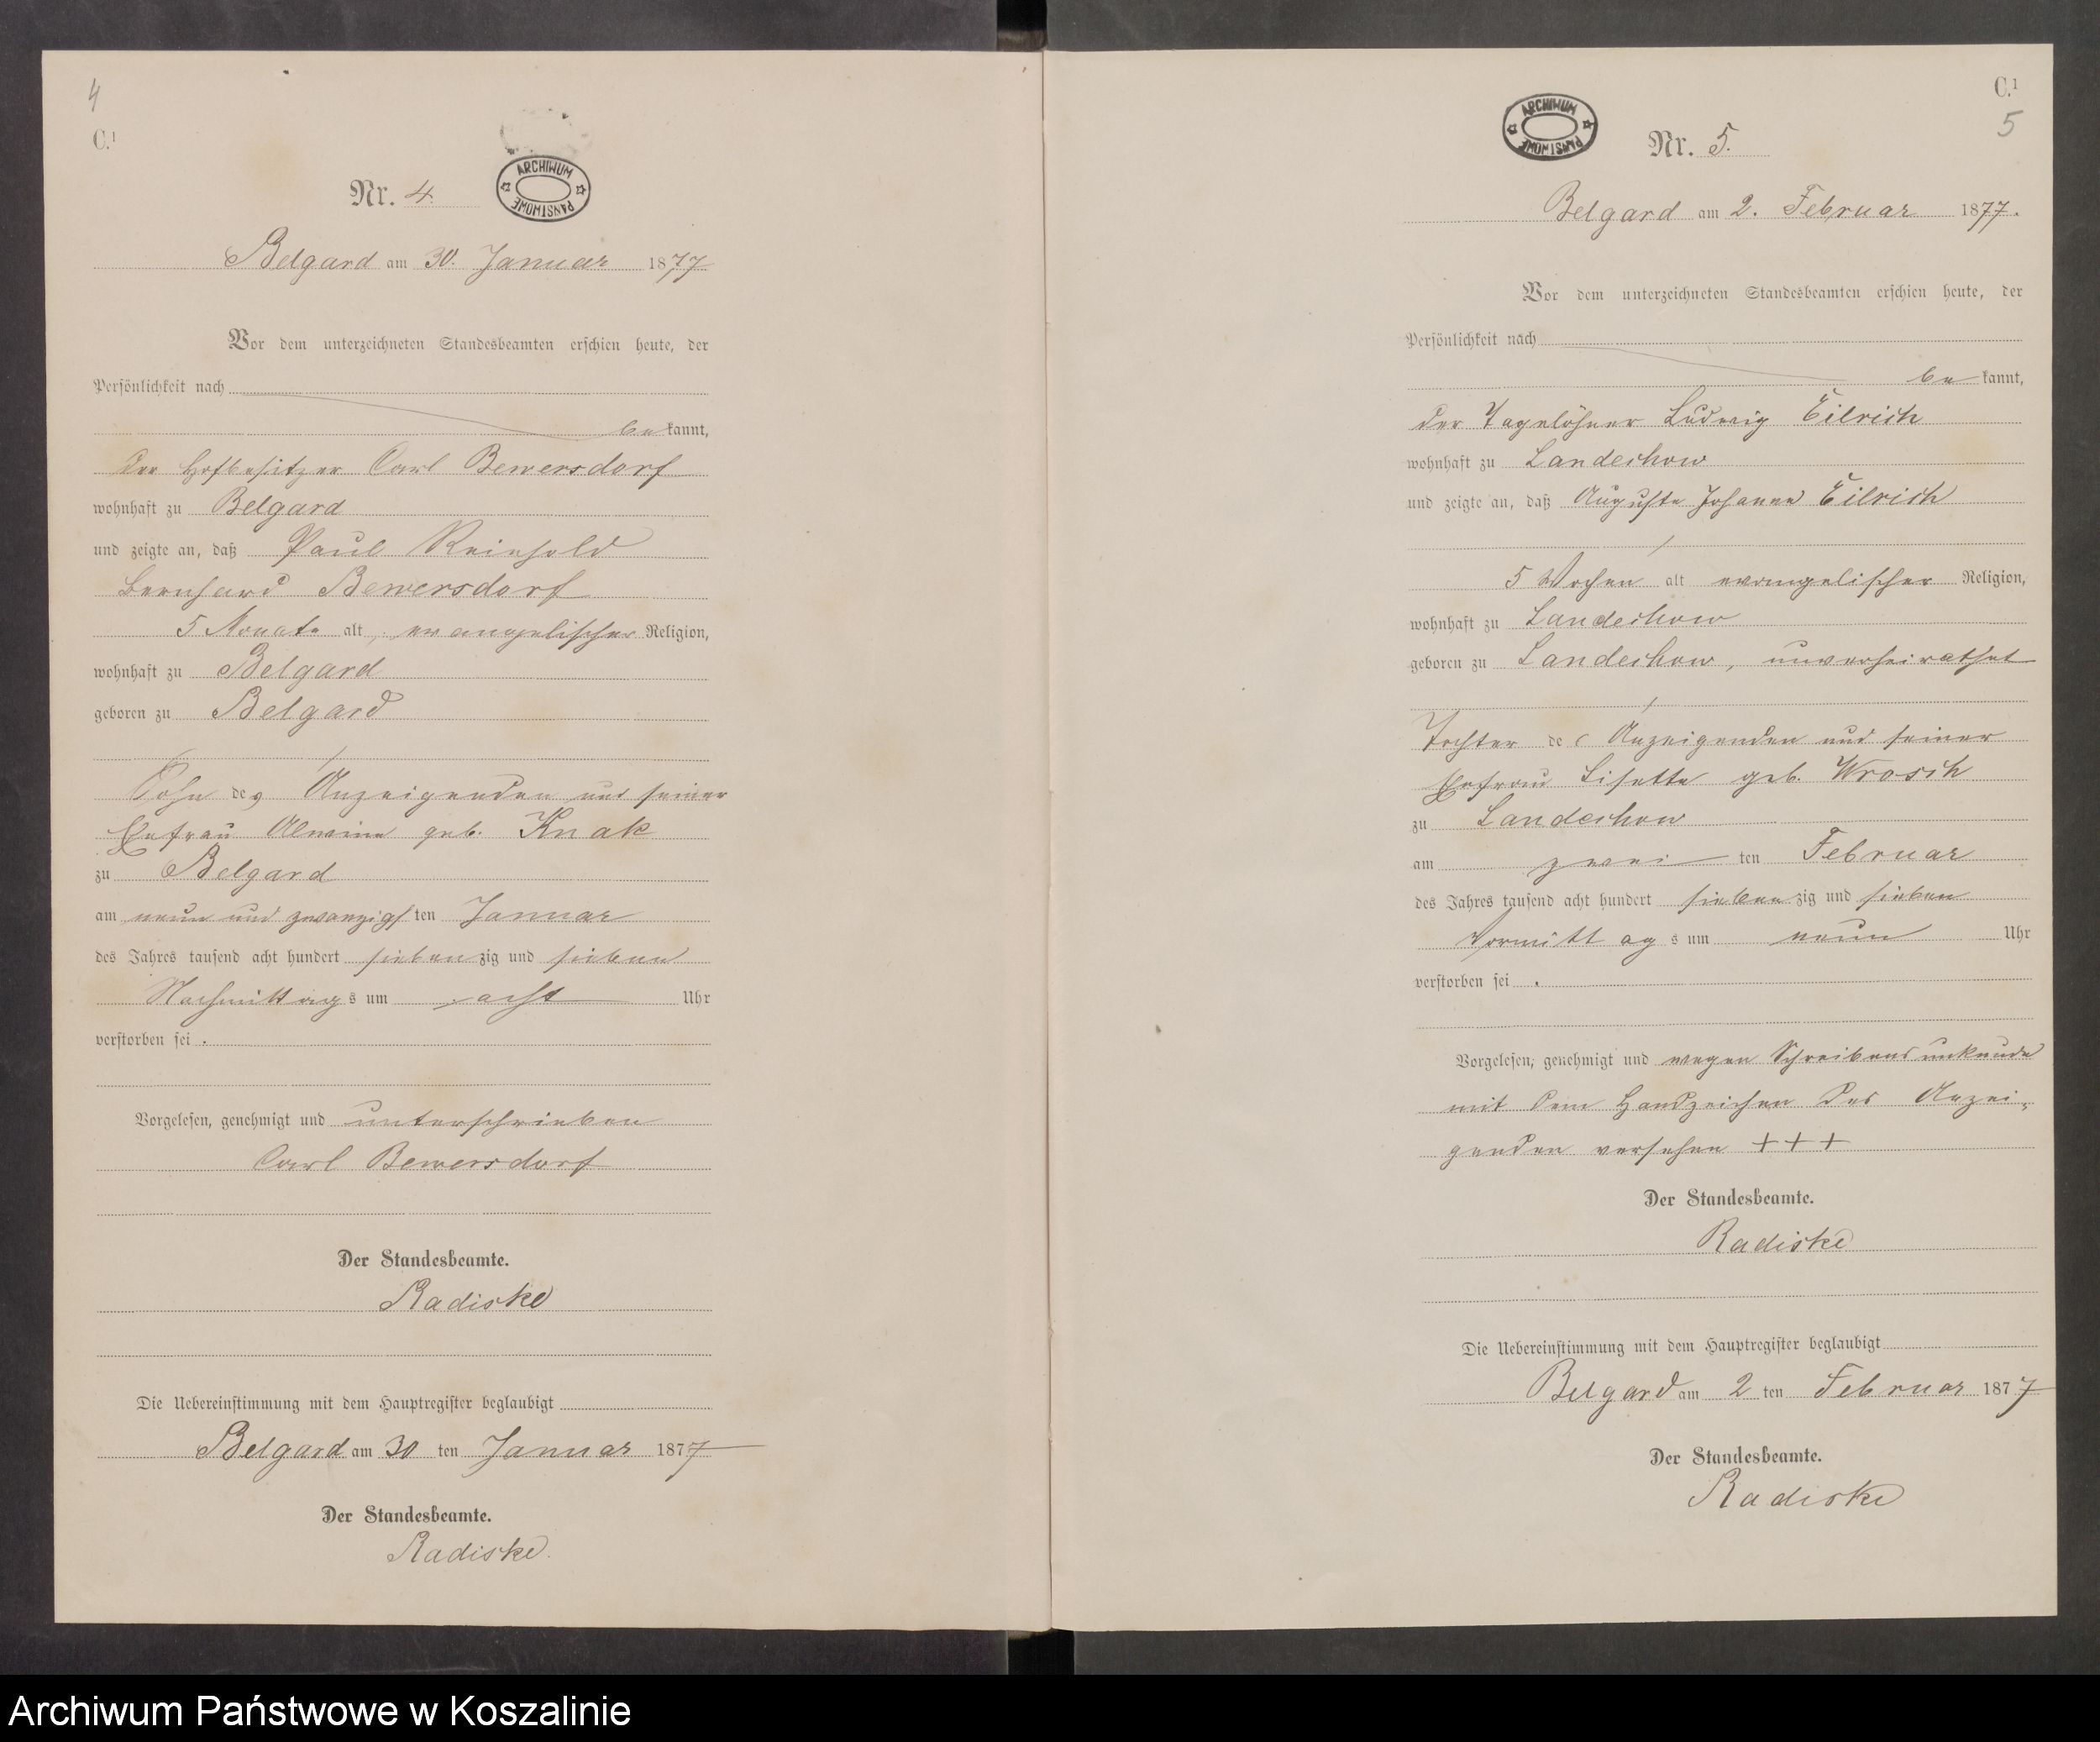 4
C.¹
Nr. 4.
ARCHIWUM PAŃSTWOWE
Belgard am 30. Januar 1877
Vor dem unterzeichneten Standesbeamten erschien heute, der
Persönlichkeit nach
be kannt,
der Hofbesitzer Carl Bewersdorf
wohnhaft zu Belgard
und zeigte an, daß Paul Reinhold
Bernhard Bewersdorf
5 Monate alt, evangelischer Religion,
wohnhaft zu Belgard
geboren zu Belgard
Sohn des Anzeigenden und seiner
Ehefrau Alwine geb. Knak
zu Belgard
am neun und zwanzigsten Januar
des Jahres tausend acht hundert siebenzig und sieben
Nachmittags um acht Uhr
verstorben sei.
Vorgelesen, genehmigt und unterschrieben
Carl Bewersdorf
Der Standesbeamte.
Radiske
Die Uebereinstimmung mit dem Hauptregister beglaubigt
Belgard am 30 ten Januar 1877
Der Standesbeamte.
Radiske.
C.¹
5
ARCHIWUM PAŃSTWOWE
Nr. 5.
Belgard am 2. Februar 1877.
Vor dem unterzeichneten Standesbeamten erschien heute, der
Persönlichkeit nach
be kannt,
der Tagelöhner Ludwig Eilrich
wohnhaft zu Landechow
und zeigte an, daß Auguste Johanne Eilrich
5 Wochen alt evangelischer Religion,
wohnhaft zu Landechow
geboren zu Landechow, unverheirathet
Tochter des Anzeigenden und seiner
Ehefrau Lisette geb. Wrosch
zu Landechow
am zwei ten Februar
des Jahres tausend acht hundert siebenzig und sieben
Vormittags um neun Uhr
verstorben sei.
Vorgelesen, genehmigt und wegen Schreibensunkunde
mit dem Handzeichen des Anzei-
genden versehen +++
Der Standesbeamte.
Radiske
Die Uebereinstimmung mit dem Hauptregister beglaubigt
Belgard am 2 ten Februar 1877
Der Standesbeamte.
Radiske
Archiwum Państwowe w Koszalinie